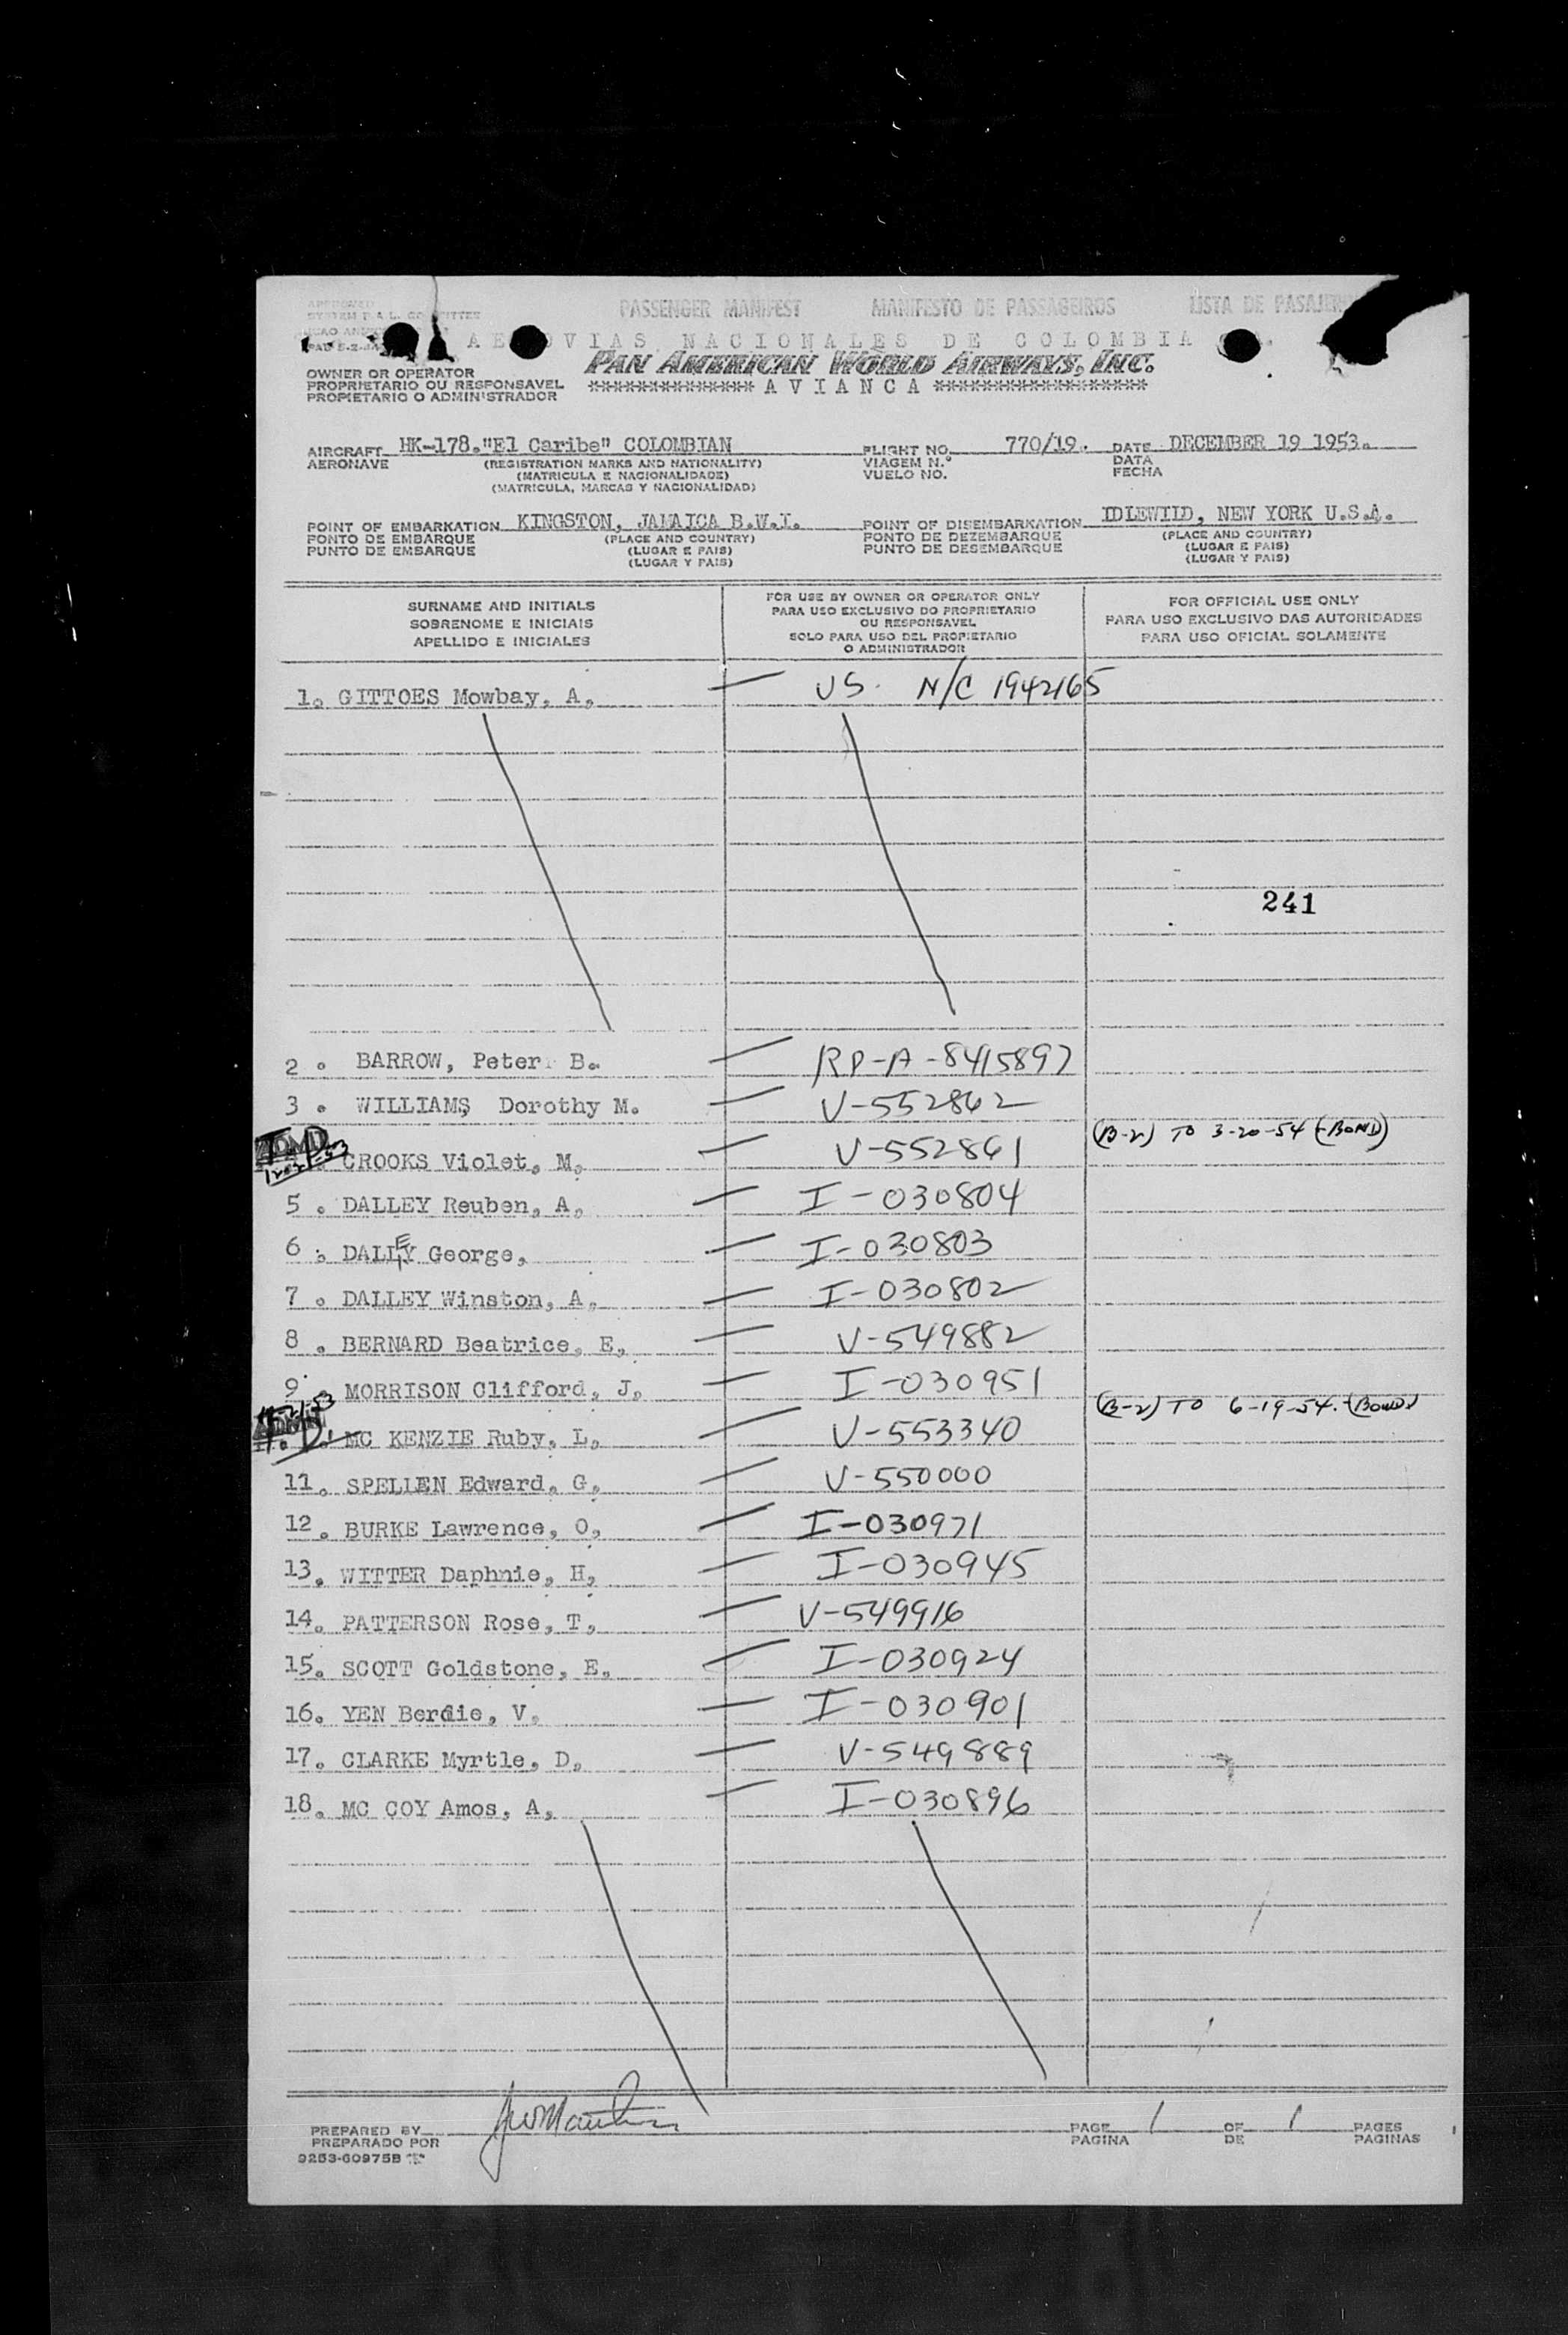 APPROVED
PASSENGER MANIFEST MANIFESTO DE PASSAGEIROS LISTA DE PASAJEROS
AEROVIAS NACIONALES DE COLOMBIA
PAN AMERICAN WORLD AIRWAYS, INC.
OWNER OR OPERATOR
PROPRIETARIO OU RESPONSAVEL
PROPIETARIO O ADMINISTRADOR
**************** AVIANCA ********************
AIRCRAFT HK-178."El Caribe" COLOMBIAN FLIGHT NO. 770/19. DATE DECEMBER 19 1953.
AERONAVE (REGISTRATION MARKS AND NATIONALITY) VIAGEM N.º DATA
(MATRICULA E NACIONALIDADE) VUELO NO. FECHA
(MATRICULA, MARCAS Y NACIONALIDAD)
POINT OF EMBARKATION KINGSTON, JAMAICA B.W.I. POINT OF DISEMBARKATION IDLEWILD, NEW YORK U.S.A.
PONTO DE EMBARQUE (PLACE AND COUNTRY) PONTO DE DEZEMBARQUE (PLACE AND COUNTRY)
PUNTO DE EMBARQUE (LUGAR E PAIS) PUNTO DE DESEMBARQUE (LUGAR E PAIS)
(LUGAR Y PAIS) (LUGAR Y PAIS)
SURNAME AND INITIALS
SOBRENOME E INICIAIS
APELLIDO E INICIALES
FOR USE BY OWNER OR OPERATOR ONLY
PARA USO EXCLUSIVO DO PROPRIETARIO
OU RESPONSAVEL
SOLO PARA USO DEL PROPIETARIO
O ADMINISTRADOR
FOR OFFICIAL USE ONLY
PARA USO EXCLUSIVO DAS AUTORIDADES
PARA USO OFICIAL SOLAMENTE
1. GITTOES Mowbay, A, — US. N/C 1942165
241
2. BARROW, Peter B. — RP-A-8415897
3. WILLIAMS Dorothy M. — V-552862
CROOKS Violet, M, — V-552861 (B-2) TO 3-20-54 (-BOND)
5. DALLEY Reuben, A, — I-030804
6. DALLEY George, — I-030803
7. DALLEY Winston, A, — I-030802
8. BERNARD Beatrice, E, — V-549882
9. MORRISON Clifford, J, — I-030951
MC KENZIE Ruby, L, — V-553340 (B-2) TO 6-19-54. (BOND)
11. SPELLEN Edward, G, — V-550000
12. BURKE Lawrence, O, — I-030971
13. WITTER Daphnie, H, — I-030945
14. PATTERSON Rose, T, — V-549916
15. SCOTT Goldstone, E, — I-030924
16. YEN Berdie, V, — I-030901
17. CLARKE Myrtle, D, — V-549889
18. MC COY Amos, A, — I-030896
PREPARED BY PAGE 1 OF 1 PAGES
PREPARADO POR PAGINA DE PAGINAS
9253-60975B